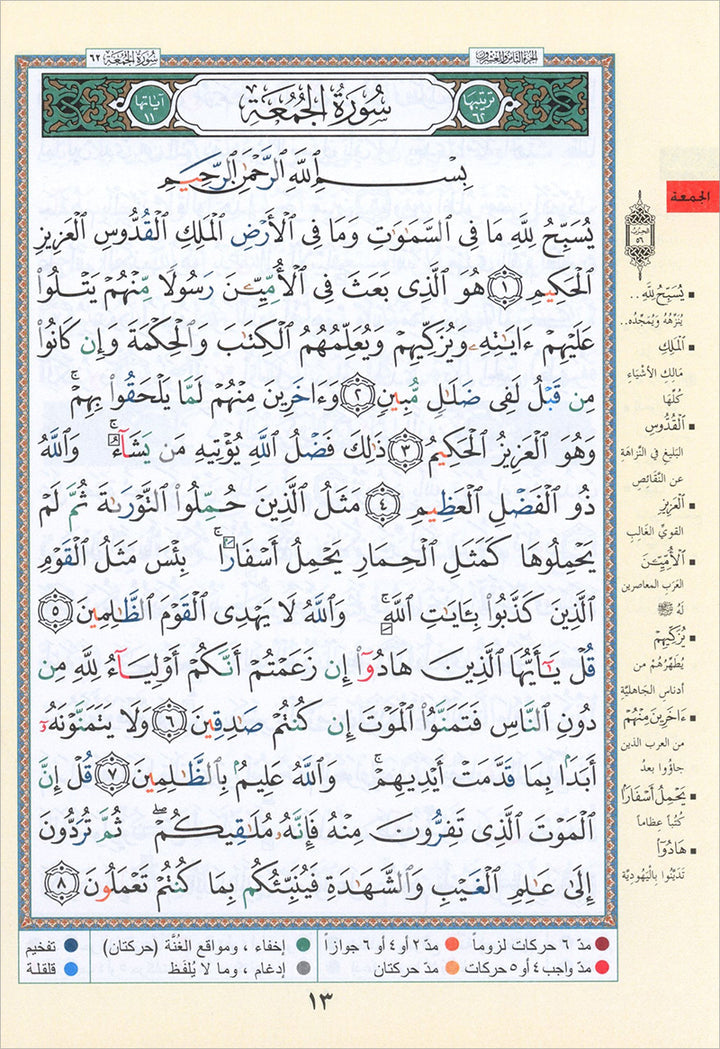 الجزء الثامن والعشرون
سُورَةُ الجُمُعَة ٦٢
ترتيبها
٦٢
سُورَةُ الجُمُعَة
آياتها
١١
بِسْمِ اللَّهِ الرَّحْمَٰنِ الرَّحِيمِ
يُسَبِّحُ لِلَّهِ مَا فِى السَّمَٰوَٰتِ وَمَا فِى الْأَرْضِ الْمَلِكِ الْقُدُّوسِ الْعَزِيزِ
الْحَكِيمِ ١ هُوَ الَّذِى بَعَثَ فِى الْأُمِّيِّۦنَ رَسُولًا مِّنْهُمْ يَتْلُوا۟
عَلَيْهِمْ ءَايَٰتِهِۦ وَيُزَكِّيهِمْ وَيُعَلِّمُهُمُ الْكِتَٰبَ وَالْحِكْمَةَ وَإِن كَانُوا۟
مِن قَبْلُ لَفِى ضَلَٰلٍ مُّبِينٍ ٢ وَءَاخَرِينَ مِنْهُمْ لَمَّا يَلْحَقُوا۟ بِهِمْ ۚ
وَهُوَ الْعَزِيزُ الْحَكِيمُ ٣ ذَٰلِكَ فَضْلُ اللَّهِ يُؤْتِيهِ مَن يَشَآءُ ۚ وَاللَّهُ
ذُو الْفَضْلِ الْعَظِيمِ ٤ مَثَلُ الَّذِينَ حُمِّلُوا۟ التَّوْرَىٰةَ ثُمَّ لَمْ
يَحْمِلُوهَا كَمَثَلِ الْحِمَارِ يَحْمِلُ أَسْفَارًۢا ۚ بِئْسَ مَثَلُ الْقَوْمِ
الَّذِينَ كَذَّبُوا۟ بِـَٔايَٰتِ اللَّهِ ۚ وَاللَّهُ لَا يَهْدِى الْقَوْمَ الظَّٰلِمِينَ ٥
قُلْ يَٰٓأَيُّهَا الَّذِينَ هَادُوٓا۟ إِن زَعَمْتُمْ أَنَّكُمْ أَوْلِيَآءُ لِلَّهِ مِن
دُونِ النَّاسِ فَتَمَنَّوُا۟ الْمَوْتَ إِن كُنتُمْ صَٰدِقِينَ ٦ وَلَا يَتَمَنَّوْنَهُۥٓ
أَبَدًۢا بِمَا قَدَّمَتْ أَيْدِيهِمْ ۚ وَاللَّهُ عَلِيمٌۢ بِالظَّٰلِمِينَ ٧ قُلْ إِنَّ
الْمَوْتَ الَّذِى تَفِرُّونَ مِنْهُ فَإِنَّهُۥ مُلَٰقِيكُمْ ۖ ثُمَّ تُرَدُّونَ
إِلَىٰ عَٰلِمِ الْغَيْبِ وَالشَّهَٰدَةِ فَيُنَبِّئُكُم بِمَا كُنتُمْ تَعْمَلُونَ ٨
الجمعة
الحزب
٥٦
يُسَبِّحُ لِلَّهِ ..
يُنَزِّهُهُ وَيُمَجِّدُه..
الْمَلِكِ
مَالِكِ الأَشْيَاءِ
كُلِّهَا
الْقُدُّوسِ
البَلِيغِ فِي النَّزَاهَةِ
عن النَّقَائِصِ
الْعَزِيزِ
القَوِيِّ الغَالِبِ
الْأُمِّيِّۦنَ
العَرَب المعاصرين
لَهُ ﷺ
يُزَكِّيهِمْ
يُطَهِّرُهُمْ من
أدناس الجَاهليَّة
ءَاخَرِينَ مِنْهُمْ
من العرب الذين
جاؤُوا بعدُ
يَحْمِلُ أَسْفَارًا
كُتُباً عِظاماً
هَادُوٓا۟
تَدَيَّنُوا بِالْيَهُودِيَّة
مدّ ٦ حركات لزوماً
مدّ ٢ أو ٤ أو ٦ جوازاً
إخفاء ، ومواقع الغُنَّة (حركتان)
تفخيم
مدّ واجب ٤ أو ٥ حركات
مدّ حركتان
إدغام ، وما لا يُلفَظ
قلقلة
١٣